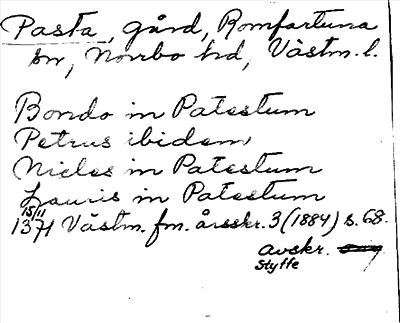 Pasta, gård, Romfartuna
sn, Norrbo hd, Västm. l.
Bondo in Patestum
Petrus ibidem
Nicles in Patestum
Lauris in Patestum
15/11
1371 Västm. fm. årsskr. 3 (1884) s. 68.
avskr.
Styffe